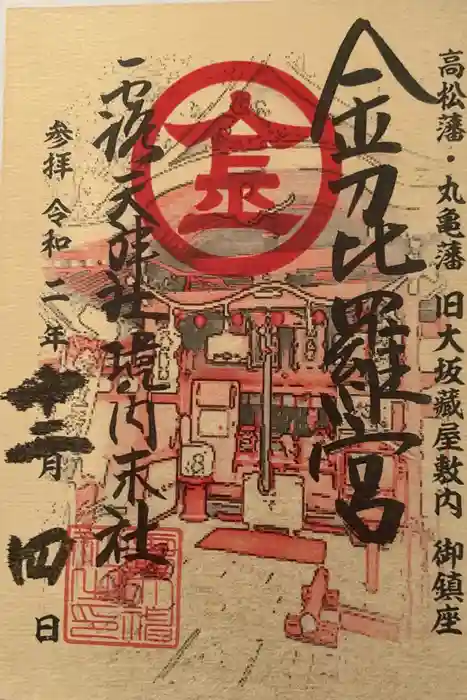 高松藩・丸亀藩 旧大坂藏屋敷内 御鎮座
金刀比羅宮
金
露天神社境内末社
参拝 令和二年十二月四日